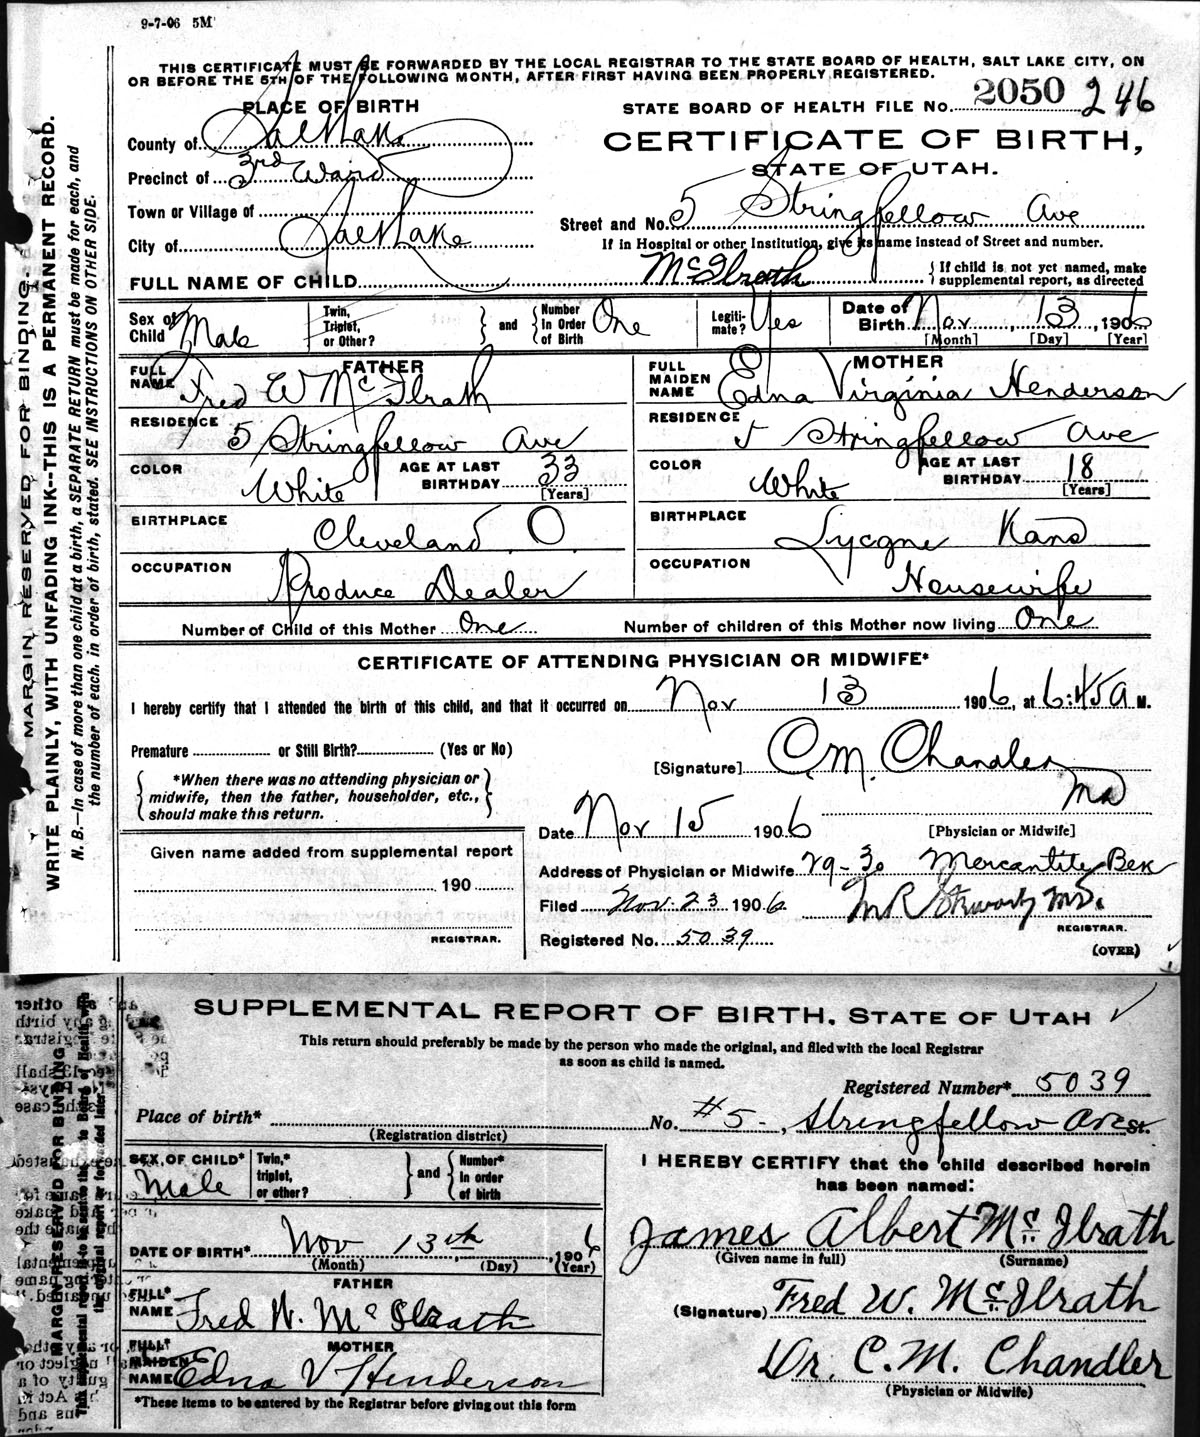 9-7-06 5M
THIS CERTIFICATE MUST BE FORWARDED BY THE LOCAL REGISTRAR TO THE STATE BOARD OF HEALTH, SALT LAKE CITY, ON
OR BEFORE THE 5TH OF THE FOLLOWING MONTH, AFTER FIRST HAVING BEEN PROPERLY REGISTERED.
PLACE OF BIRTH
STATE BOARD OF HEALTH FILE No. 2050 246
County of Salt Lake
CERTIFICATE OF BIRTH,
STATE OF UTAH.
Precinct of 3rd Ward
Town or Village of
Street and No. 5 Stringfellow Ave
City of Salt Lake
If in Hospital or other Institution, give its name instead of Street and number.
FULL NAME OF CHILD McIlrath
{ If child is not yet named, make
supplemental report, as directed
Sex of Child Male
Twin, Triplet, or Other?
and
Number In Order of Birth One
Legiti-mate? Yes
Date of Birth Nov, 13, 1906
[Month] [Day] [Year]
FATHER
FULL NAME Fred W McIlrath
RESIDENCE 5 Stringfellow Ave
COLOR White
AGE AT LAST BIRTHDAY 33
[Years]
BIRTHPLACE Cleveland O.
OCCUPATION Produce Dealer
MOTHER
FULL MAIDEN NAME Edna Virginia Henderson
RESIDENCE 5 Stringfellow Ave
COLOR White
AGE AT LAST BIRTHDAY 18
[Years]
BIRTHPLACE Lycgne Kans
OCCUPATION Housewife
Number of Child of this Mother One
Number of children of this Mother now living One
CERTIFICATE OF ATTENDING PHYSICIAN OR MIDWIFE*
I hereby certify that I attended the birth of this child, and that it occurred on Nov 13 1906, at 6:45 a M.
Premature or Still Birth? (Yes or No)
[Signature] C.M. Chandler
MD
*When there was no attending physician or
midwife, then the father, householder, etc.,
should make this return.
Date Nov 15 1906
[Physician or Midwife]
Given name added from supplemental report
190
REGISTRAR.
Address of Physician or Midwife 29-30 Mercantile
Filed Nov. 23 1906. M.D.
REGISTRAR.
Registered No. 5039
(OVER)
MARGIN RESERVED FOR BINDING.
WRITE PLAINLY, WITH UNFADING INK--THIS IS A PERMANENT RECORD.
N. B.—In case of more than one child at a birth, a SEPARATE RETURN must be made for each, and
the number of each, in order of birth, stated. SEE INSTRUCTIONS ON OTHER SIDE.
SUPPLEMENTAL REPORT OF BIRTH, STATE OF UTAH
This return should preferably be made by the person who made the original, and filed with the local Registrar
as soon as child is named.
Registered Number* 5039
Place of birth* No. #5, Stringfellow Ave St.
(Registration district)
SEX OF CHILD* Male
Twin,* triplet, or other?
and
Number* In order of birth
DATE OF BIRTH* Nov 13th, 1906
(Month) (Day) (Year)
FATHER
FULL* NAME Fred W. McIlrath
MOTHER
FULL* MAIDEN NAME Edna V Henderson
*These items to be entered by the Registrar before giving out this form
I HEREBY CERTIFY that the child described herein
has been named:
James Albert McIlrath
(Given name in full) (Surname)
(Signature) Fred W. McIlrath
Dr. C.M. Chandler
(Physician or Midwife)
MARGIN RESERVED FOR BINDING